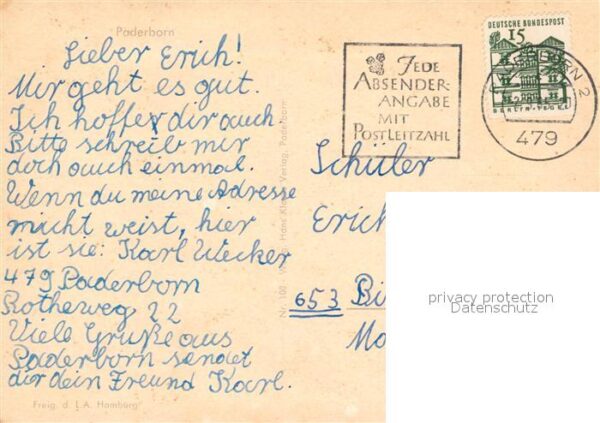 Paderborn
Lieber Erich!
Mir geht es gut.
Ich hoffe dir auch.
Bitte schreib mir
doch auch einmal.
Wenn du meine Adresse
nicht weist, hier
ist sie: Karl Wecker
479 Paderborn
Rotheweg 22
Viele Gruße aus
Paderborn sendet
dir dein Freund Karl.
Freig. d. L.A. Hamburg
Verlag, Paderborn
JEDE
ABSENDER-
ANGABE
MIT
POSTLEITZAHL
DEUTSCHE BUNDESPOST
15
BERLIN-TEGEL
479
Schüler
Erich
653 Bi
privacy protection
Datenschutz